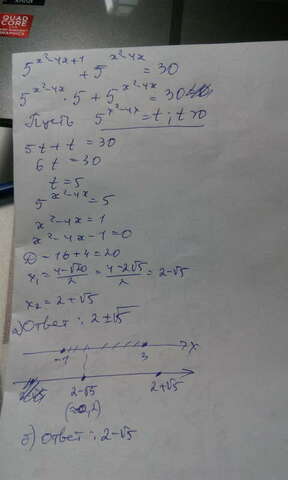 QUAD
CORE
5^(x²-4x+1) + 5^(x²-4x) = 30
5^(x²-4x) · 5 + 5^(x²-4x) = 30
Пусть 5^(x²-4x) = t ; t>0
5t + t = 30
6t = 30
t = 5
5^(x²-4x) = 5
x²-4x = 1
x²-4x-1=0
D = 16+4=20
x₁ = (4-√20)/2 = (4-2√5)/2 = 2-√5
x₂ = 2+√5
а) Ответ: 2±√5
-1 3 x
2-√5 2+√5
(≈-0,2)
б) Ответ: 2-√5